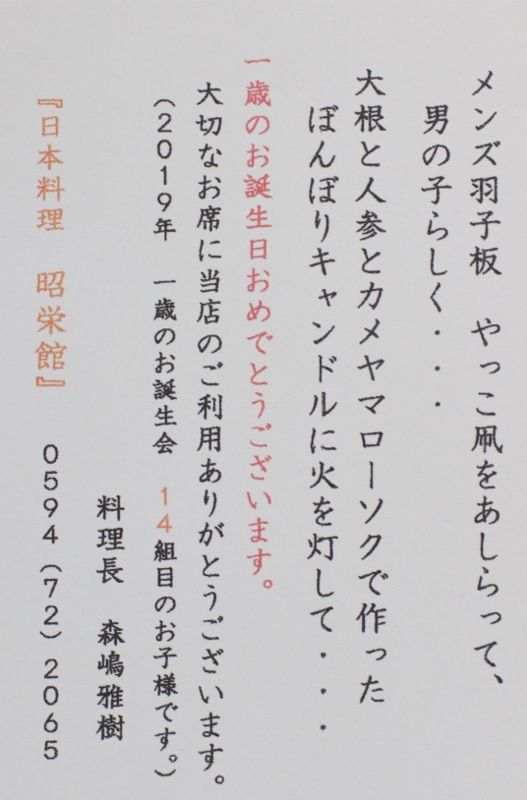 メンズ羽子板　やっこ凧をあしらって、
男の子らしく・・・
大根と人参とカメヤマローソクで作った
ぼんぼりキャンドルに火を灯して・・・
一歳のお誕生日おめでとうございます。
大切なお席に当店のご利用ありがとうございます。
（２０１９年　一歳のお誕生会　１４組目のお子様です。）
料理長　森嶋雅樹
『日本料理　昭栄館』　０５９４（７２）２０６５